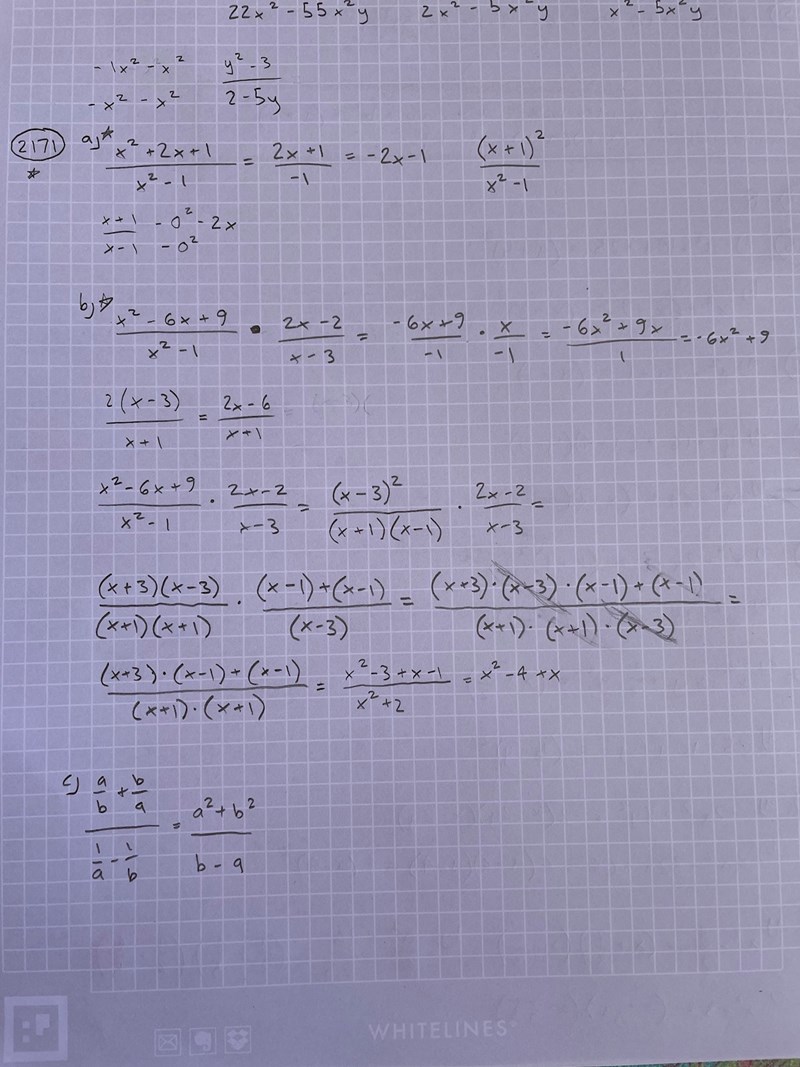 22x² - 55x²y   2x² - 5x²y   x² - 5x²y
-1x² - x²   (y² - 3)/(2 - 5y)
-x² - x²
2171 * a)* (x² + 2x + 1)/(x² - 1) = (2x + 1)/(-1) = -2x - 1   (x + 1)²/(x² - 1)
x+1 - 0² - 2x
x-1 - 0²
b)* (x² - 6x + 9)/(x² - 1) · (2x - 2)/(x - 3) = (-6x + 9)/(-1) · x/(-1) = (-6x² + 9x)/1 = -6x² + 9
2(x - 3)/(x + 1) = (2x - 6)/(x + 1)
(x² - 6x + 9)/(x² - 1) · (2x - 2)/(x - 3) = (x - 3)²/((x + 1)(x - 1)) · (2x - 2)/(x - 3) =
(x+3)(x-3)/((x+1)(x+1)) · ((x-1)+(x-1))/(x-3) = ((x+3)·(x-3)·(x-1)+(x-1))/((x+1)·(x+1)·(x-3)) =
((x+3)·(x-1)+(x-1))/((x+1)·(x+1)) = (x² - 3 + x - 1)/(x² + 2) = x² - 4 + x
c) (a/b + b/a)/(1/a - 1/b) = (a² + b²)/(b - a)
WHITELINES